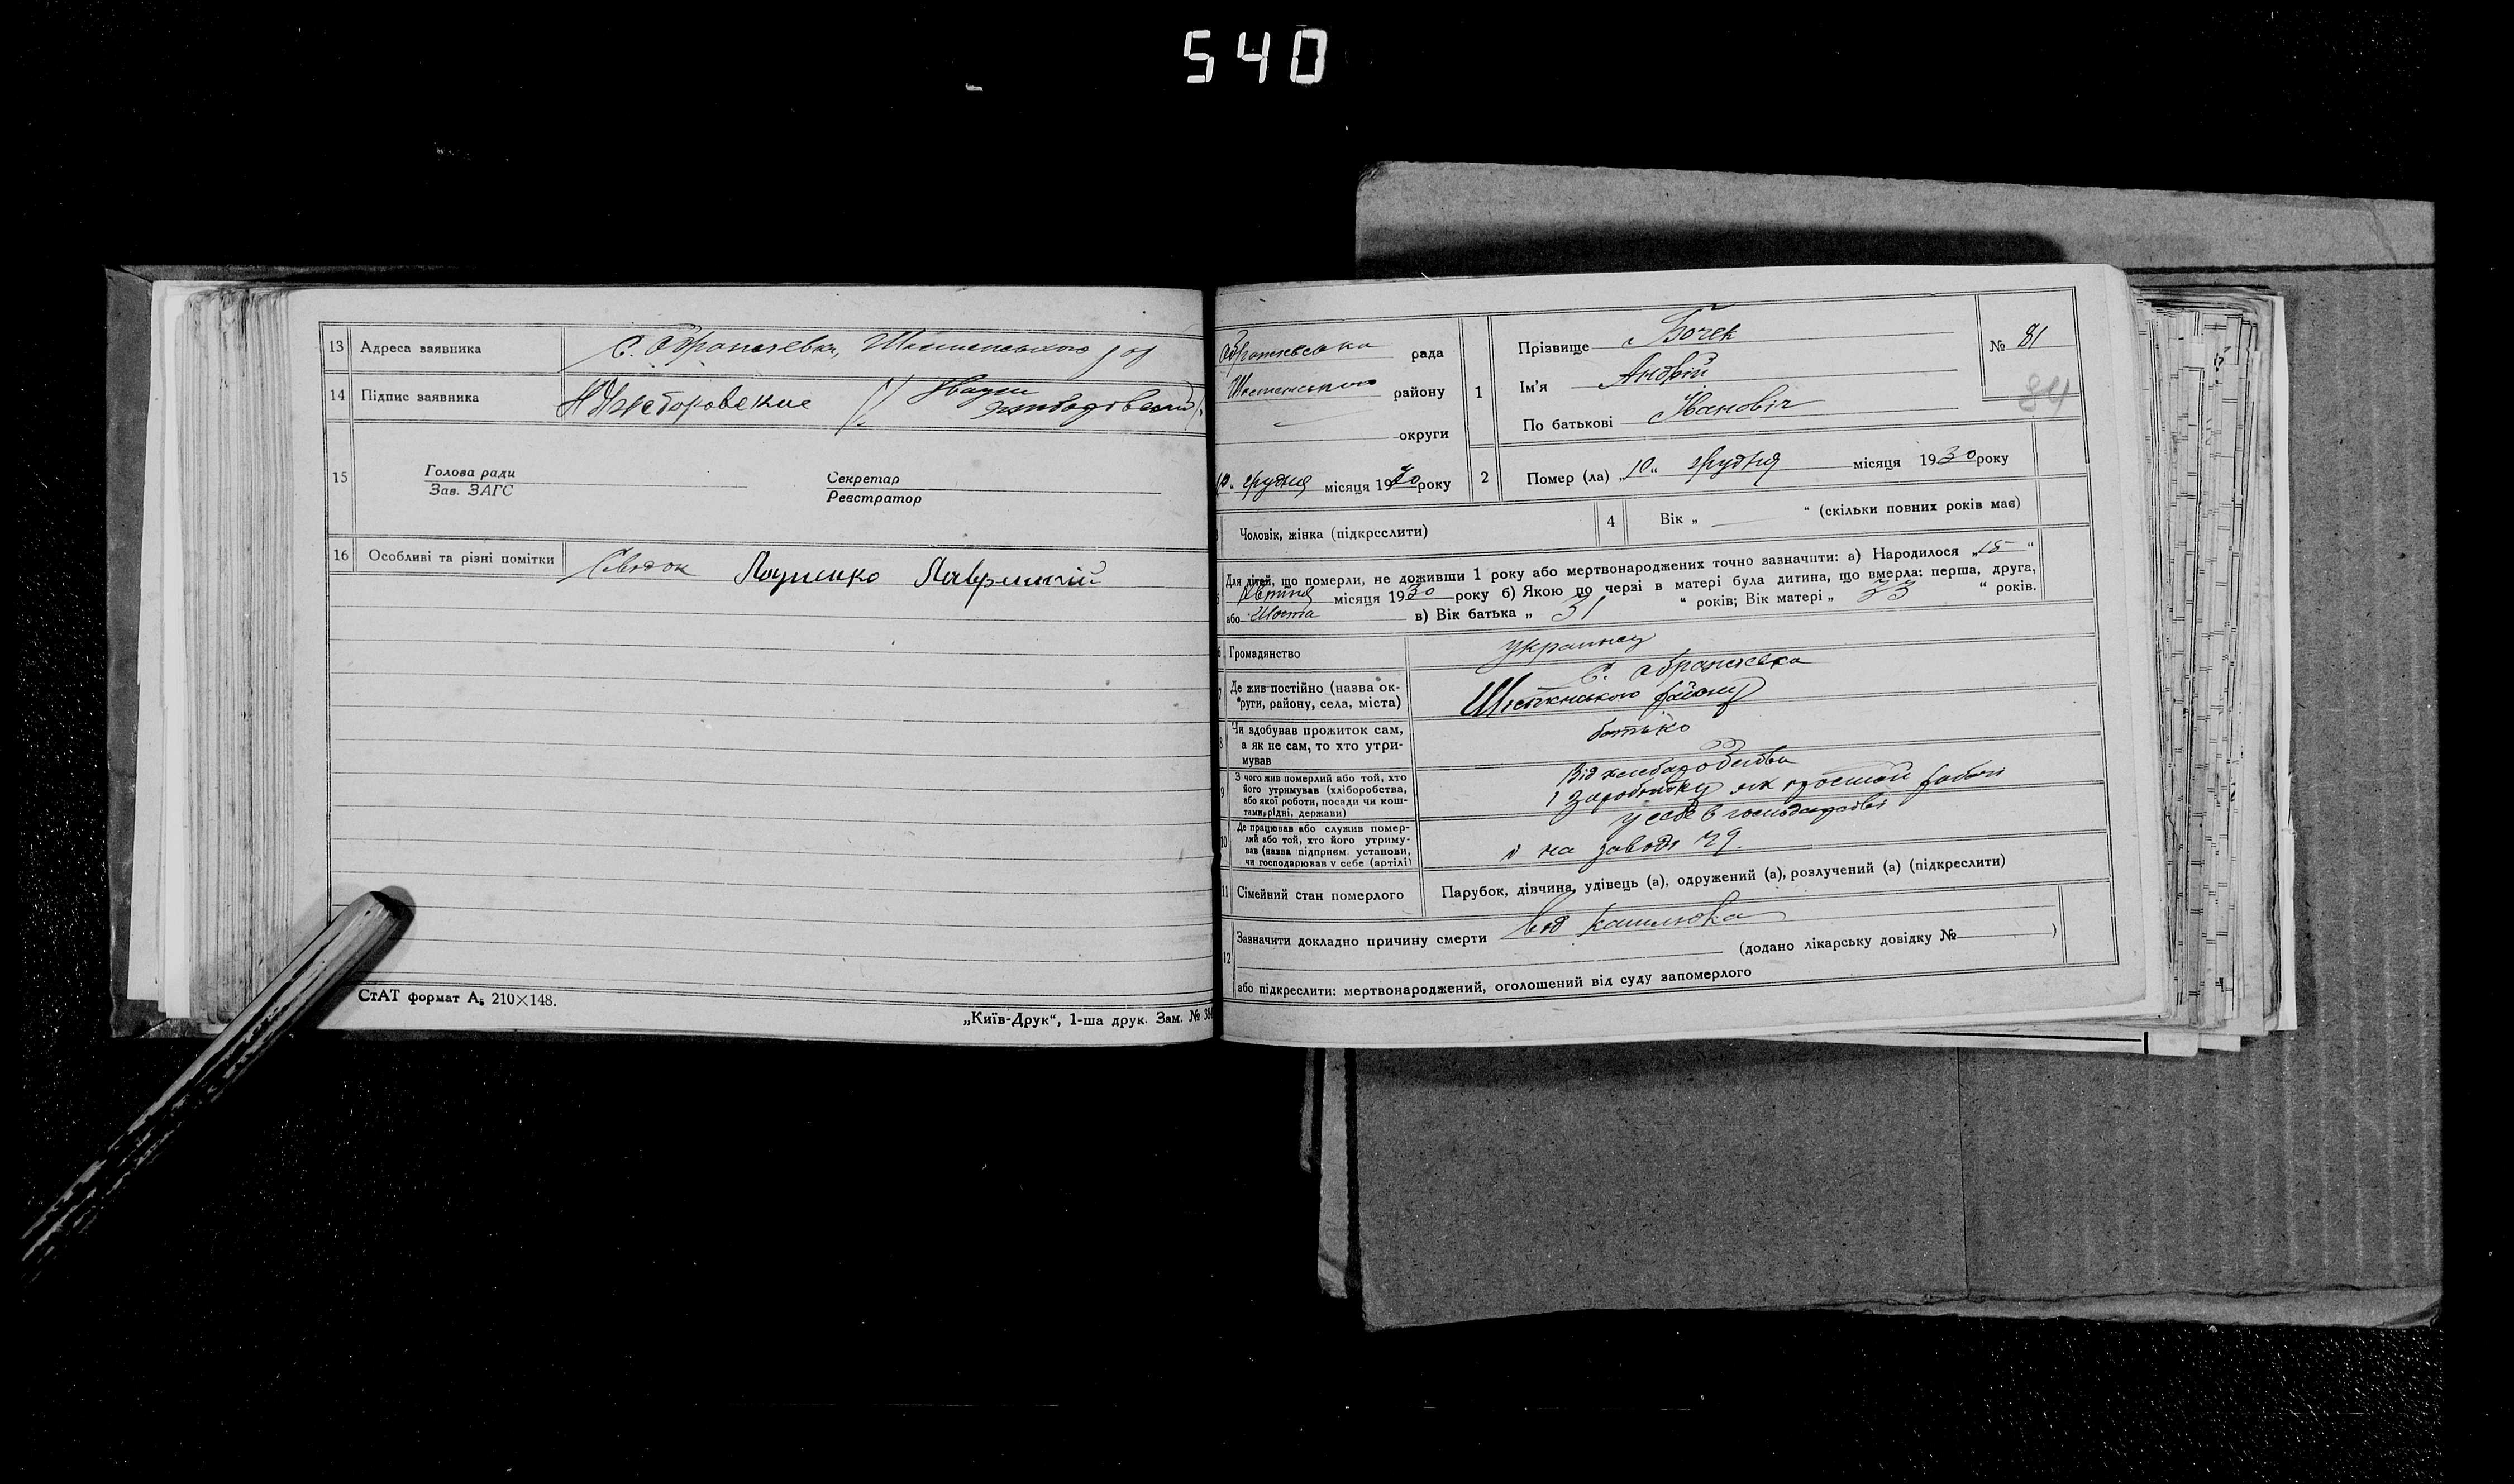 540
13 Адреса заявника С.
14 Підпис заявника
15 Голова ради
Зав. ЗАГС
Секретар
Реєстратор
16 Особливі та різні помітки Свідок Луценко
СтАТ формат А5 210×148.
„Київ-Друк“, 1-ша друк. Зам. №
рада
району
округи
10„ грудня місяця 1930року
1 Прізвище Бочек
Ім'я Андрій
По батькові Івановіч
№ 81
84
2 Помер (ла) „10„ грудня місяця 1930року
Чоловік, жінка (підкреслити)
4 Вік „ “ (скільки повних років має)
Для дітей, що померли, не доживши 1 року або мертвонароджених точно зазначити: а) Народилося „15“
місяця 1930 року б) Якою по черзі в матері була дитина, що вмерла: перша, друга,
або Шоста в) Вік батька „ 31 “ років; Вік матері „ 33 “ років.
6 Громадянство украинец
7 Де жив постійно (назва ок-
руги, району, села, міста) С.
району
8 Чи здобував прожиток сам,
а як не сам, то хто утри-
мував батько
9 З чого жив померлий або той, хто
його утримував (хліборобства,
або якої роботи, посади чи кош-
тами рідні, держави) Від
і заробітку як простой
10 Де працював або служив помер-
лий або той, хто його утриму-
вав (назва підприєм. установи,
чи господарював у себе (артілі) у себе в господарстві
і на заводі
11 Сімейний стан померлого Парубок, дівчина, удівець (а), одружений (а), розлучений (а) (підкреслити)
12 Зазначити докладно причину смерти від кашлюка
(додано лікарську довідку № )
або підкреслити: мертвонароджений, оголошений від суду запомерлого